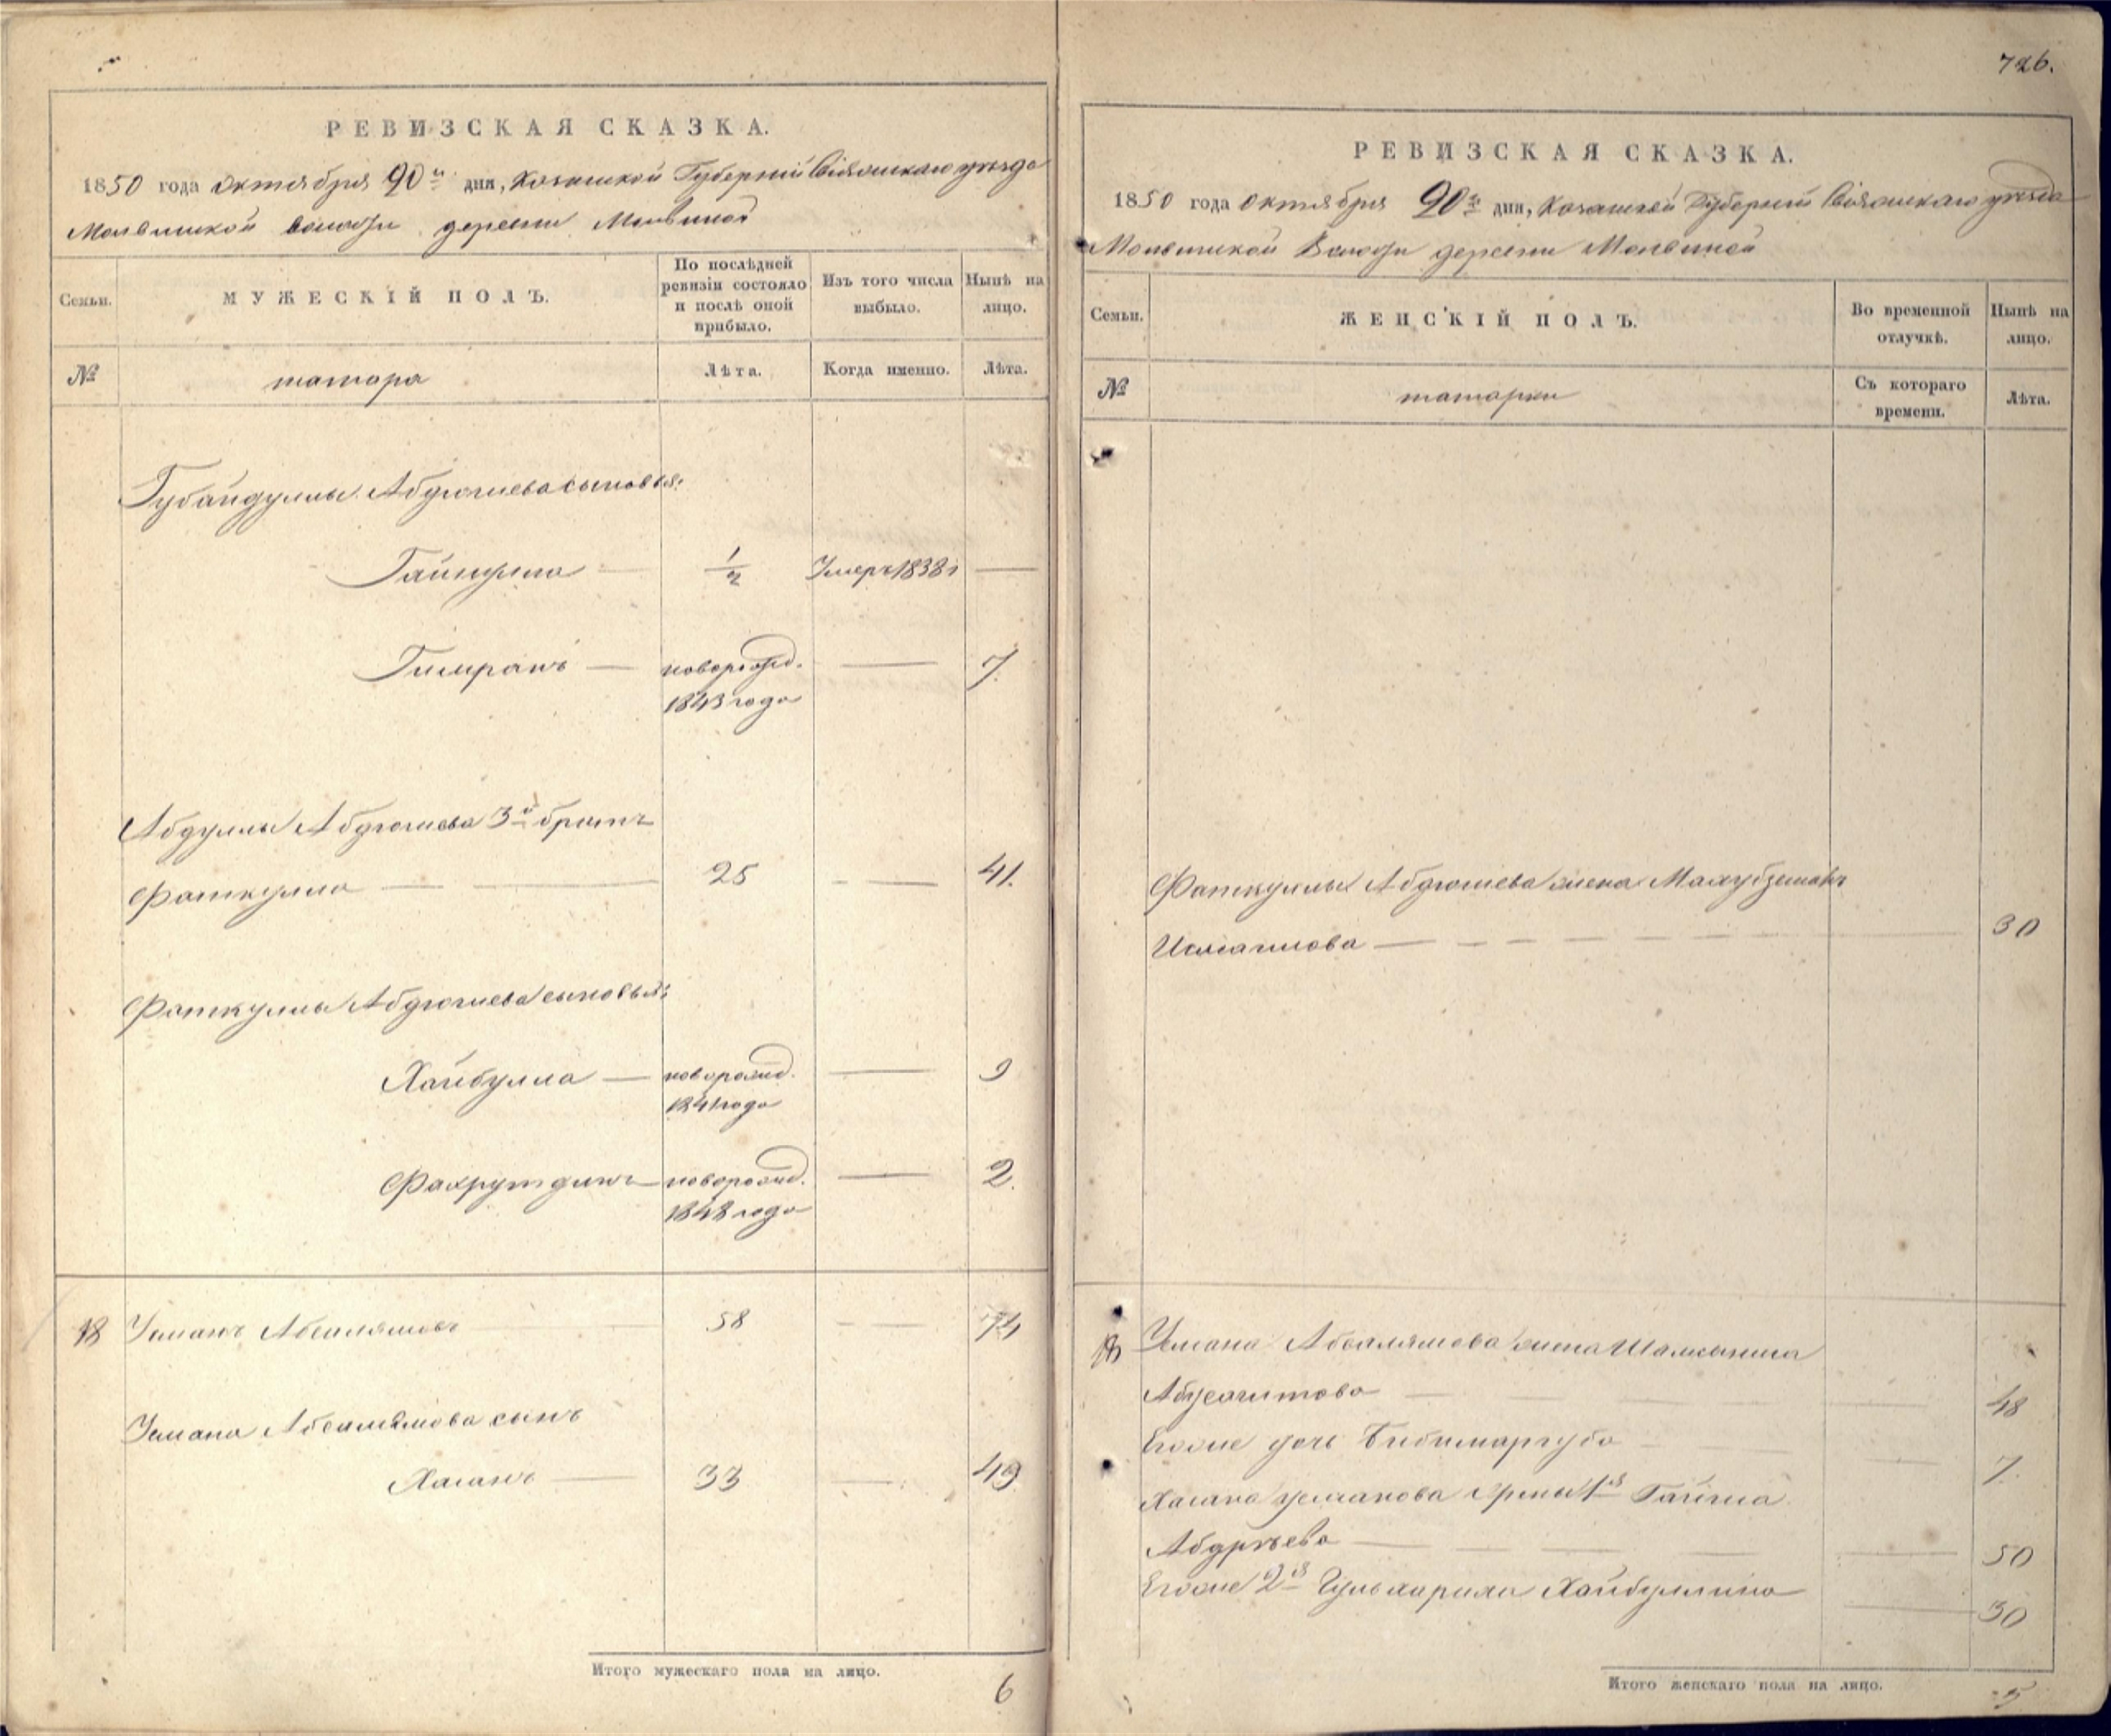 РЕВИЗСКАЯ СКАЗКА.
1850 года октября 20го дня, Казанской Губерніи Свіяжскаго уѣзда
Молвинской волости деревни Молвиной
Семьи.
МУЖЕСКІЙ ПОЛЪ.
По послѣдней ревизіи состояло и послѣ оной прибыло.
Изъ того числа выбыло.
Нынѣ на лицо.
№
татара
Лѣта.
Когда именно.
Лѣта.
Губайдуллы Абдюшева сыновья:
Гайнулла — 1/2 Умеръ 1838 г —
Гимранъ — новорожд. — 7.
1843 года
Абдуллы Абдюшева 3й братъ
Фаткулла — — 25 — — 41.
Фаткуллы Абдюшева сыновья:
Хайбулла — новорожд. — 9
1841 года
Фахрутдинъ — новорожд. — 2.
1848 года
18 Усманъ Абсалямовъ 58 — 74
Усмана Абсалямова сынъ
Хасанъ — 33 — 49
Итого мужескаго пола на лицо. 6
726.
РЕВИЗСКАЯ СКАЗКА.
1850 года октября 20го дня, Казанской Губерніи Свіяжскаго уѣзда
Молвинской Волости деревни Молвиной
Семьи.
ЖЕНСКІЙ ПОЛЪ.
Во временной отлучкѣ.
Нынѣ на лицо.
№
татарки
Съ котораго времени.
Лѣта.
Фаткуллы Абдюшева жена Махубземалъ
Исмагилова — — — — 30
18 Усмана Абсалямова жена
— — — 48
Его же дочь Бибимаргуба — — 7.
Хасана Усманова жены 1я
— — — — 50
Его же 2я Хайбуллина — 30
Итого женскаго пола на лицо. 5